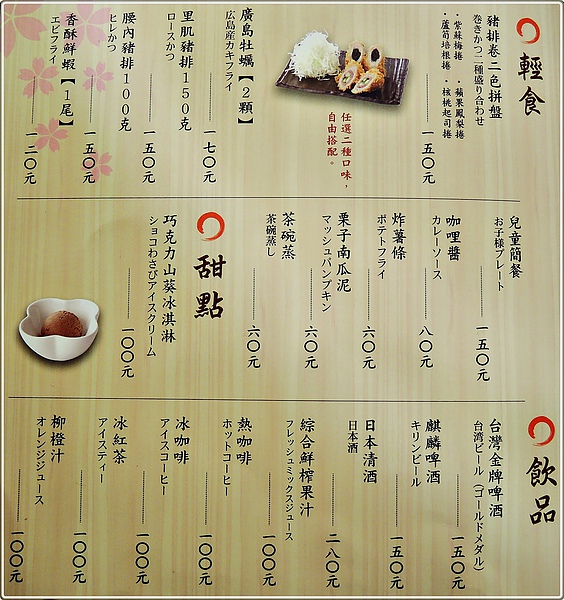 輕食
豬排卷二色拼盤
巻きかつ二種盛り合わせ
・紫蘇梅捲 ・蘋果鳳梨捲
・蘆筍培根捲 ・核桃起司捲
一五〇元
任選二種口味，
自由搭配。
廣島牡蠣【2顆】
広島産カキフライ
一七〇元
里肌豬排150克
ロースかつ
一五〇元
腰內豬排100克
ヒレかつ
一五〇元
香酥鮮蝦【1尾】
エビフライ
一二〇元
兒童簡餐
お子様プレート
一五〇元
咖哩醬
カレーソース
八〇元
炸薯條
ポテトフライ
六〇元
栗子南瓜泥
マッシュパンプキン
六〇元
茶碗蒸
茶碗蒸し
六〇元
甜點
巧克力山葵冰淇淋
ショコわさびアイスクリーム
一〇〇元
飲品
台灣金牌啤酒
台湾ビール（ゴールドメダル）
一五〇元
麒麟啤酒
キリンビール
一五〇元
日本清酒
日本酒
二八〇元
綜合鮮榨果汁
フレッシュミックスジュース
一〇〇元
熱咖啡
ホットコーヒー
一〇〇元
冰咖啡
アイスコーヒー
一〇〇元
冰紅茶
アイスティー
一〇〇元
柳橙汁
オレンジジュース
一〇〇元